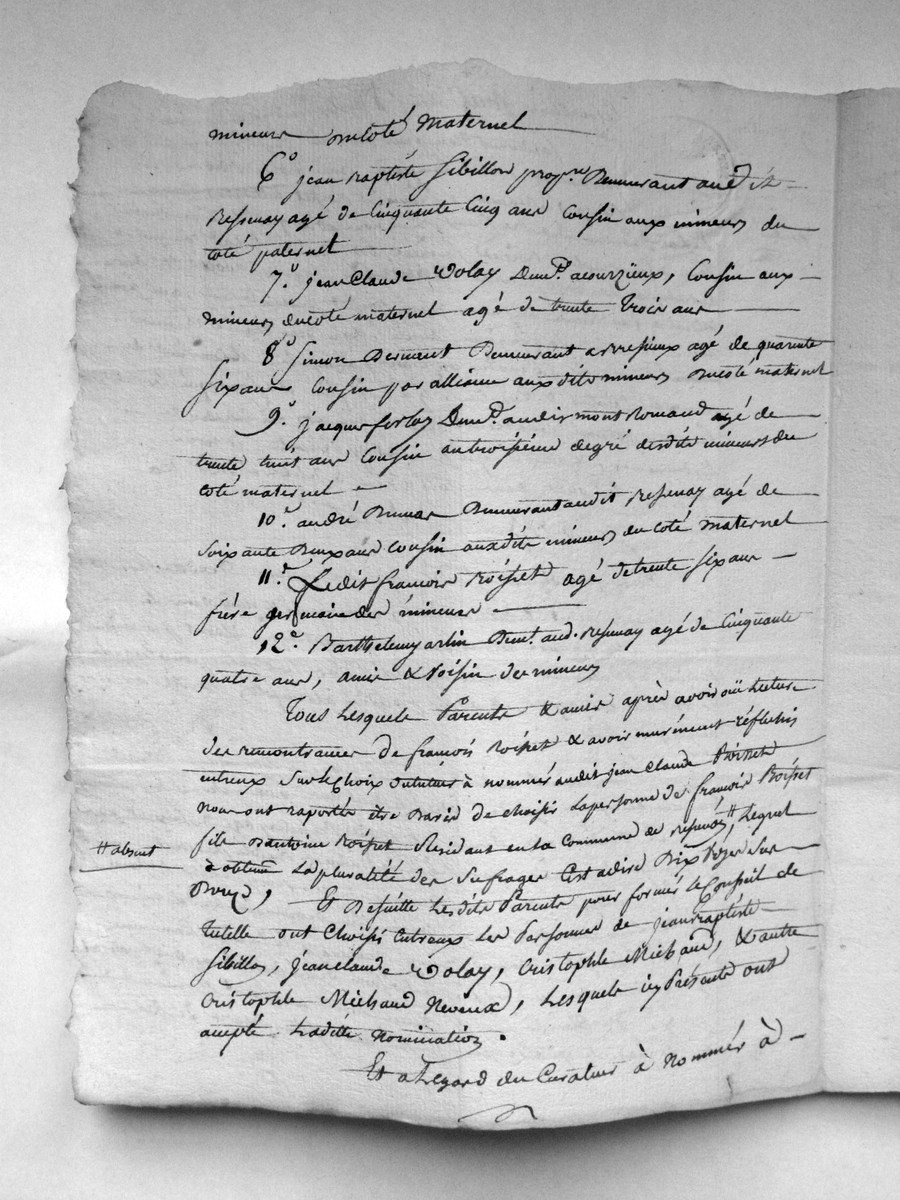 mineurs du coté Maternel
6° jean Baptiste Sibillon propre. Demeurant audit
Ressenay agé de Cinquante Cinq ans Cousin aux mineurs du
coté paternel
7° jean Claude Volay Demt. acourzieux, Cousin aux
mineurs du coté maternel agé de trente trois ans
8° Simon Demeurant agé de quarante
Six ans Cousin par alliance auxdits mineurs du coté maternel
9° jacque ferlay Demt. audit montRomand agé de
trente huit ans Cousin autroisième degré desdits mineurs du
coté maternel
10° andré Demeurant audit Ressenay agé de
Soixante Deux ans Cousin auxdits mineurs du coté maternel
11° Ledit françois Poisset agé de trente Six ans
frère germain des mineurs
12° Barthelemy arlin Demt. aud. Ressenay agé de Cinquante
quatre ans, amis & Voisin des mineurs
Tous Lesquels Parents & amis après avoir oüi Lecture
des remontrances de françois Poisset & avoir murément réfléchis
entreux Sur le Choix du tuteur à nommér audit jean Claude Poisset
nous ont raportés être D'avis de choisir La personne de françois Poisset
fils D'antoine Poisset Residant en La Commune de Ressenay # Lequel
# absent
à obtenu La pluralité des Sufrages C'est adire Dix Voix Sur
Douze, Et De suitte Lesdits Parents pour formér Le Conseil de
Tutelle ont Choisi Entreux Les Personnes de jean Baptiste
Sibillon, jean claude Volay, Cristophle Michaud, & autre
Cristophle Michaud Neveux, Lesquels icy Présents ont
accepté Laditte Nomination.
Et a L'egard du Curateur à nommér à